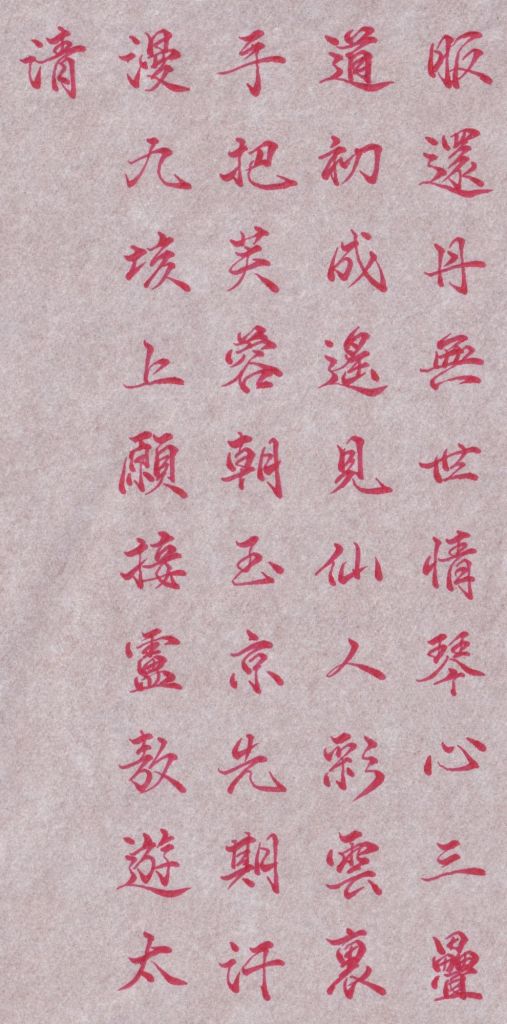 服還丹無世情琴心三疊
道初成遙見仙人彩雲裏
手把芙蓉朝玉京先期汗
漫九垓上願接盧敖遊太
清